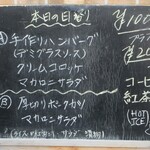 本日の日替り
Ⓐ 手作りハンバーグ
(デミグラスソース)
クリームコロッケ
マカロニサラダ
Ⓑ 厚切りポークカツ
マカロニサラダ
¥100
コーヒ
紅茶
(HOT
ICE)